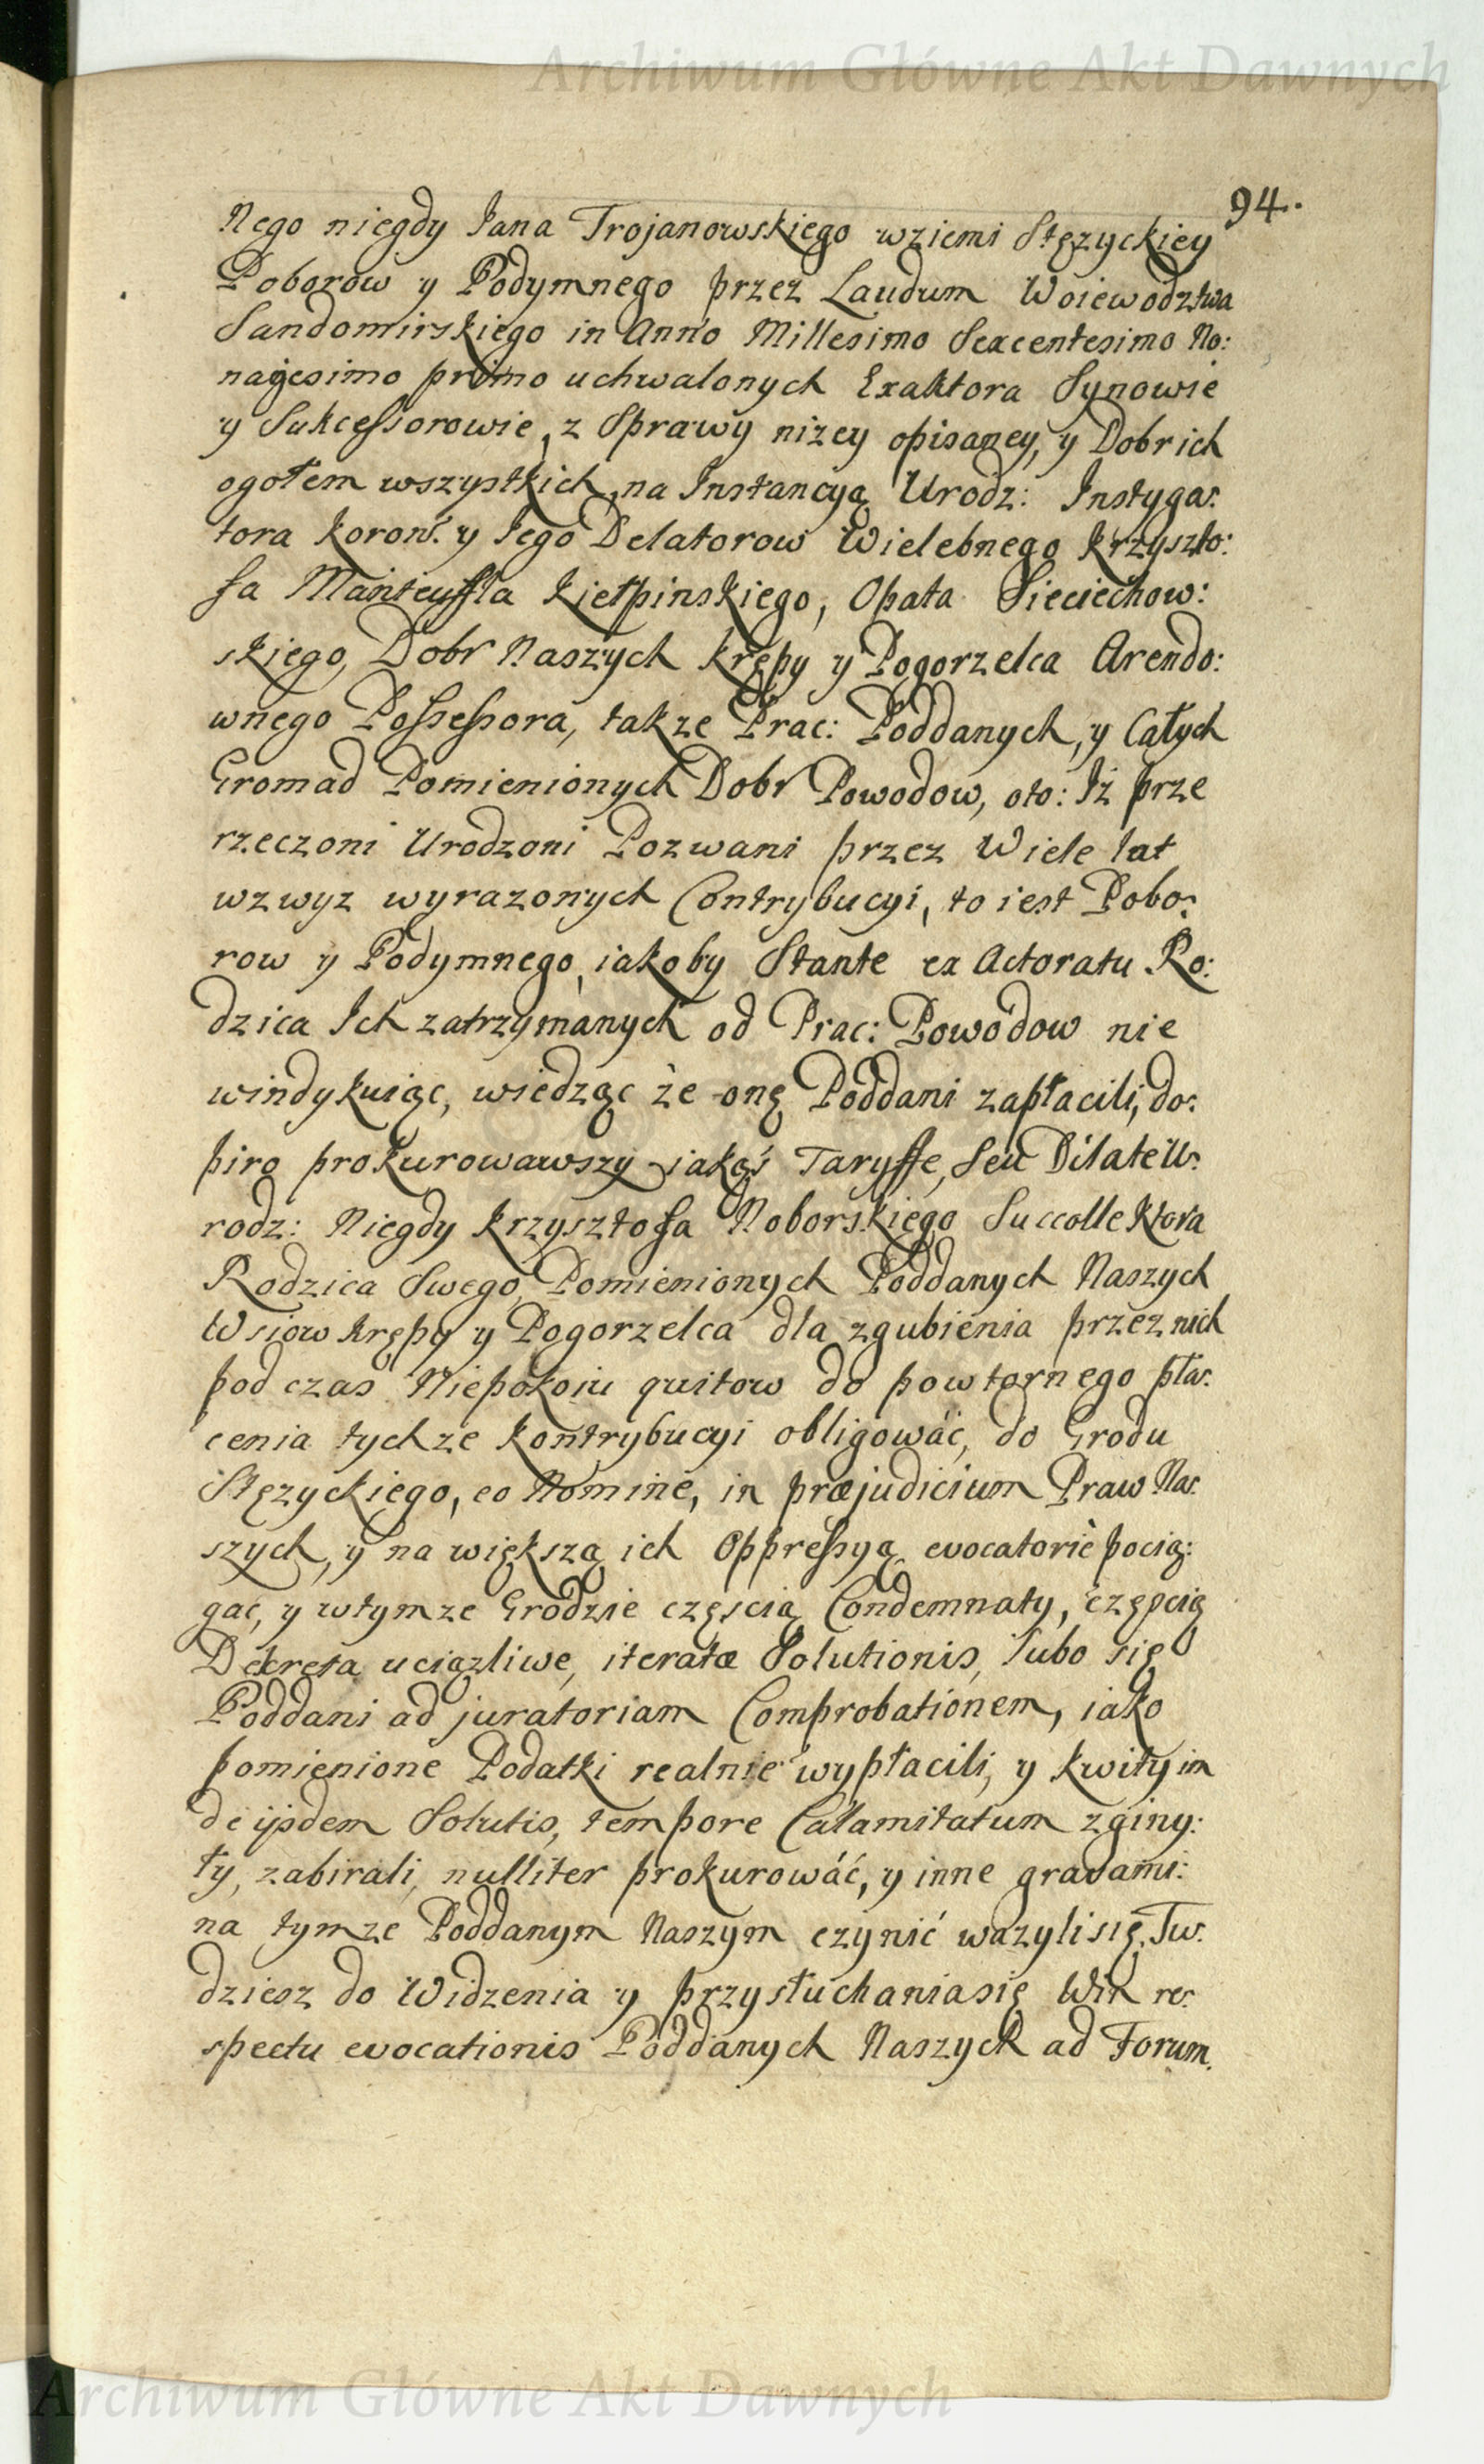 Archiwum Główne Akt Dawnych
94.
Nego niegdy Jana Trojanowskiego wziemi Stęzyckiey
Poborow y Podymnego przez Laudum Woiewodztwa
Sandomirskiego in Anno Millesimo Sexcentesimo No:
nagesimo primo uchwalonych Exaktora Synowie
y Sukcessorowie, z Sprawy nizey opisaney, y Dobr ich
ogołem wszystkich, na Instancyą Urodz: Instyga:
tora Koron: y Jego Delatorow Wielebnego Krzyszto:
fa Manteuffla Kiełpinskiego, Opata Sieciechow:
skiego, Dobr Naszych Krępy y Pogorzelca Arendo:
wnego Possessora, takze Prac: Poddanych, y Całych
Gromad Pomienionych Dobr Powodow, oto: Iż prze
rzeczoni Urodzoni Pozwani przez Wiele lat
wzwyz wyrazonych Contrybucyi, to iest Pobo:
row y Podymnego, iakoby Stante ex Actoratu Ro:
dzica Ich zatrzymanych od Prac: Powodow nie
windykuiąc, wiedząc że onę Poddani zapłacili, do:
piro prokurowawszy iakąś Taryffe, seu Dilate U:
rodz: Niegdy Krzysztofa Noborskiego Succollektora
Rodzica Swego, Pomienionych Poddanych Naszych
Wsiow Krępy y Pogorzelca dla zgubienia przez nich
pod czas Niepokoiu quitow do powtornego pła:
cenia tychze Kontrybucyi obligowáć, do Grodu
Stęzyckiego, eo Nomine, in præjudicium Praw Na:
szych, y na większą ich Oppressyą evocatoriè pocią:
gać, y wtymze Grodzie częscią Condemnaty, częscią
Dekreta uciązliwe, iteratæ Solutionis, lubo się
Poddani ad juratoriam Comprobationem, iako
pomienione Podatki realnie wypłacili, y Kwity im
de ijsdem Solutis, tempore Calamitatum zginy:
ły, zabirali, nulliter prokurowáć, y inne gravami:
na tymze Poddanym Naszym czynić wazyli się. Tu:
dziesz do Widzenia y przysłuchania się Win re:
spectu evocationis Poddanych Naszych ad Forum.
Archiwum Główne Akt Dawnych